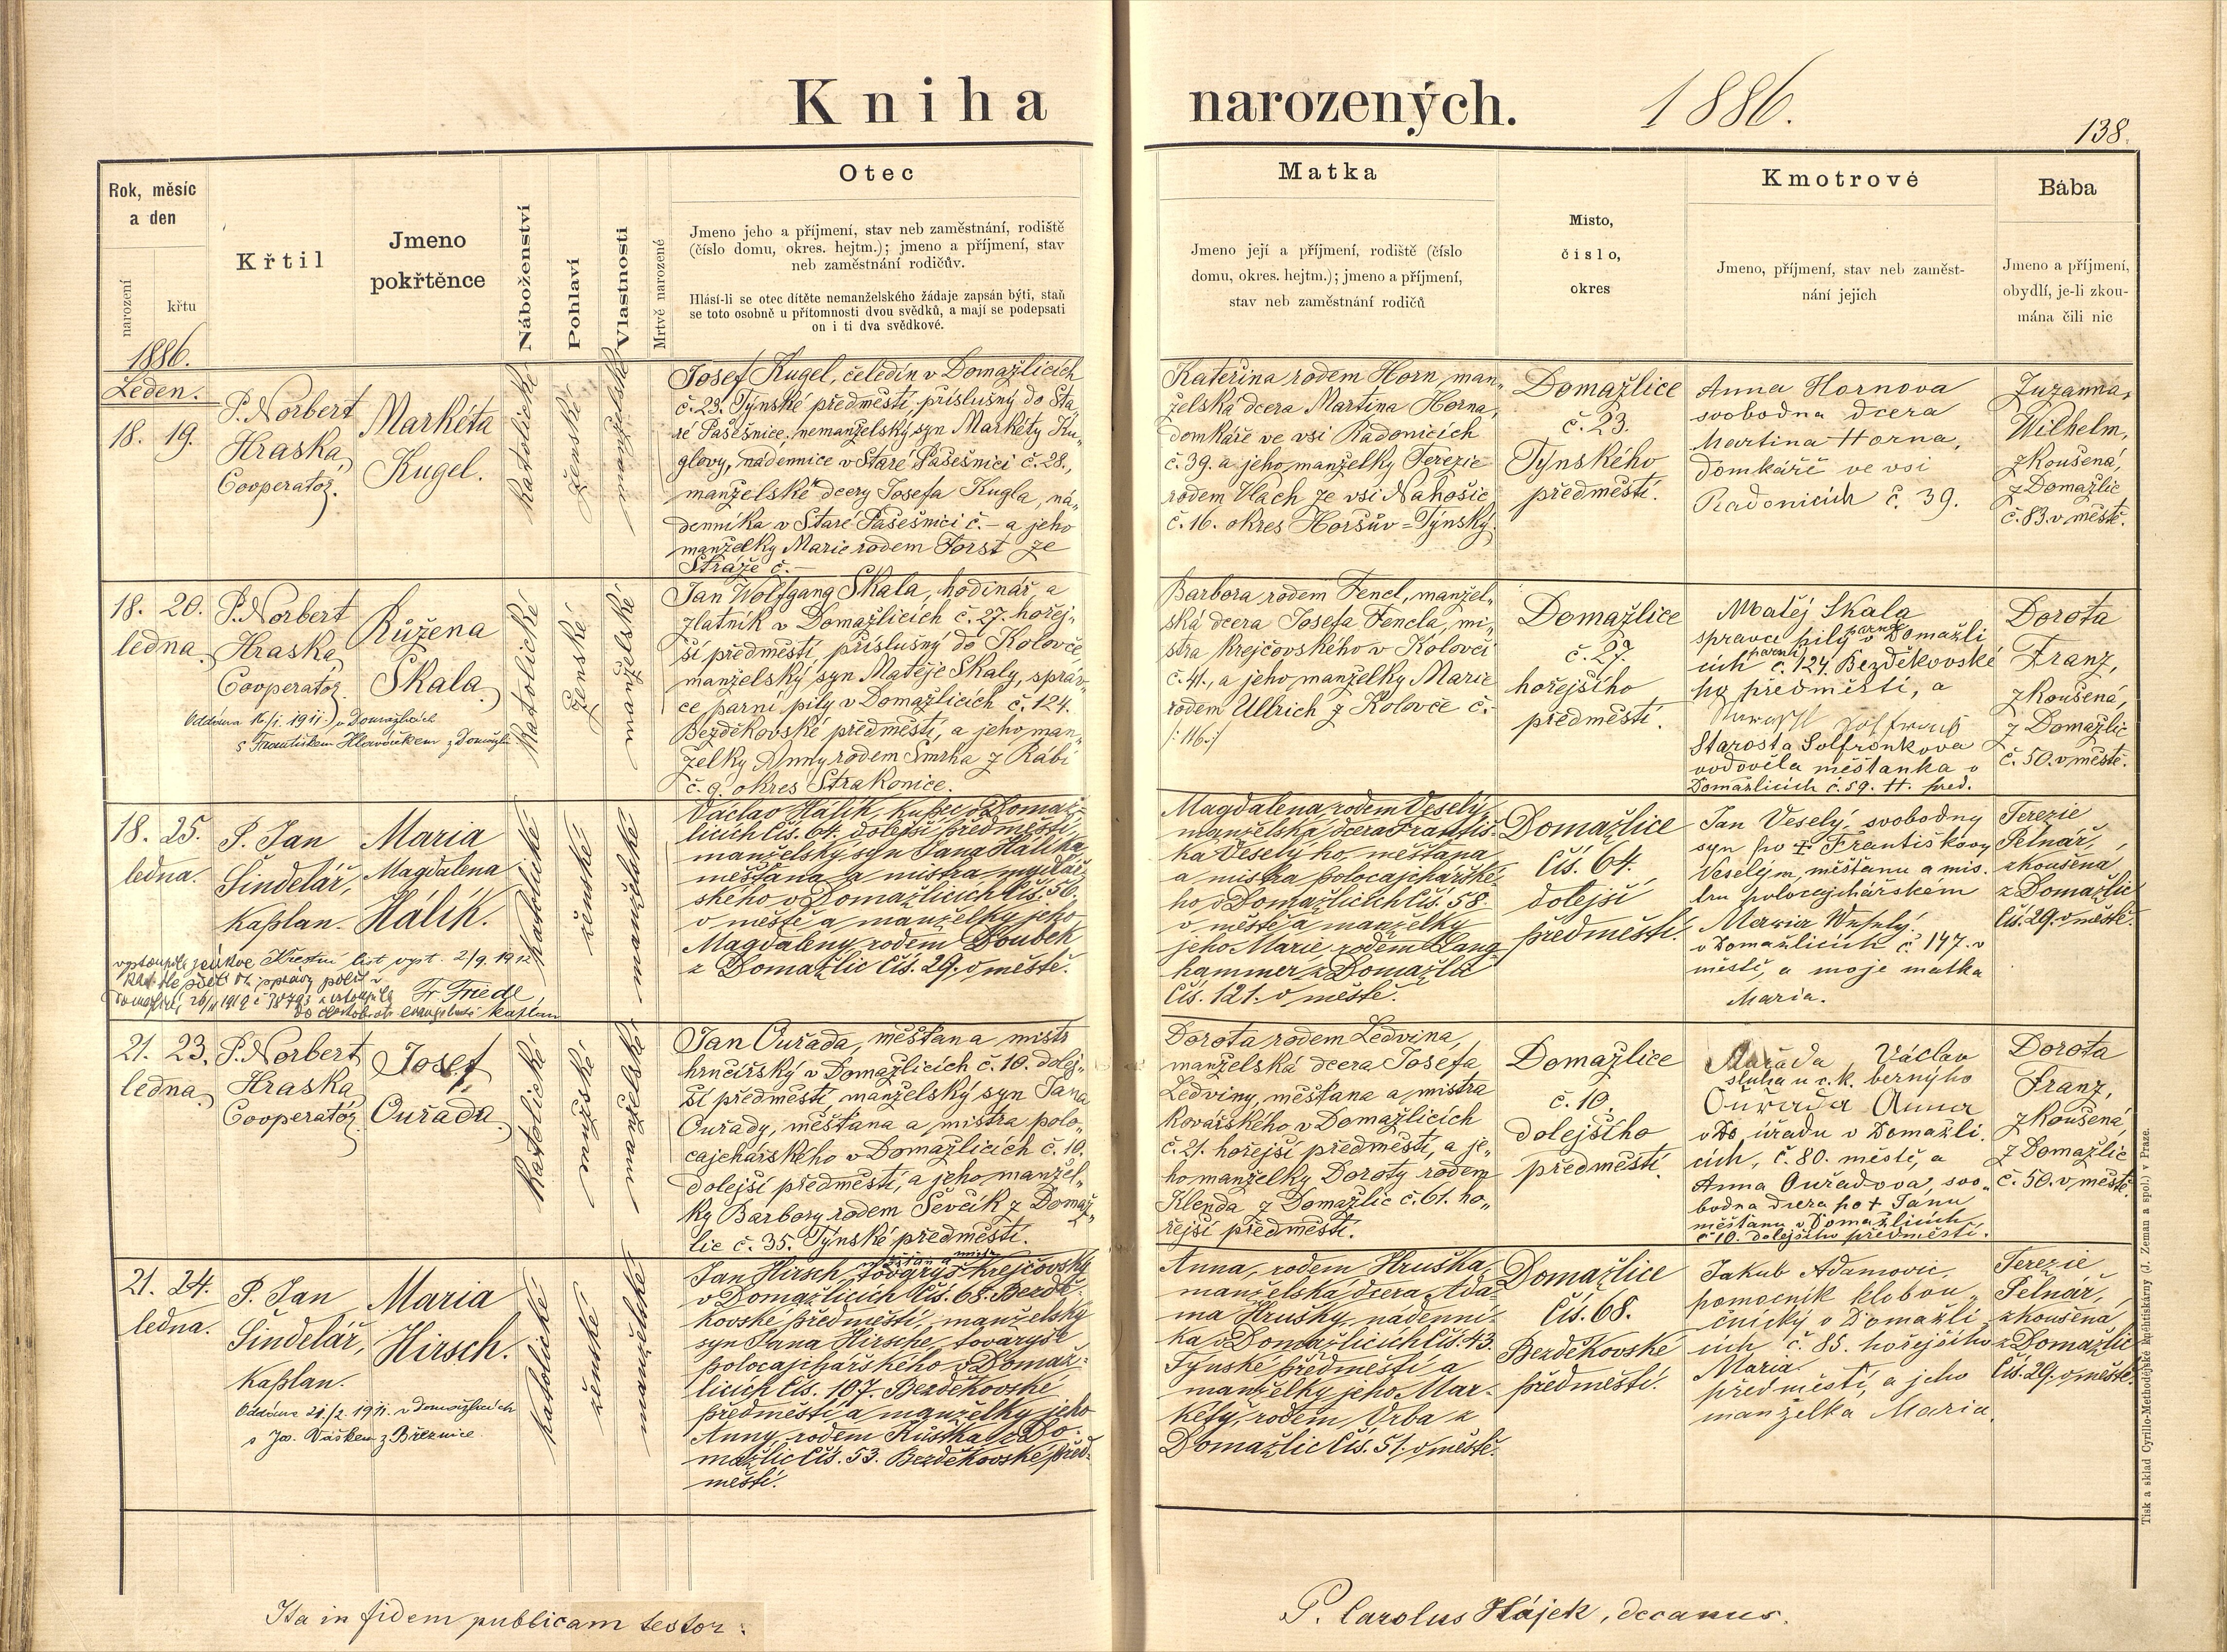 Kniha narozených. 1886.
138.
Rok, měsíc a den
narození
křtu
Křtil
Jmeno pokřtěnce
Náboženství
Pohlaví
Vlastnosti
Mrtvě narozené
Otec
Jmeno jeho a příjmení, stav neb zaměstnání, rodiště
(číslo domu, okres. hejtm.); jmeno a příjmení, stav
neb zaměstnání rodičův.
Hlásí-li se otec dítěte nemanželského žádaje zapsán býti, staň
se toto osobně u přítomnosti dvou svědků, a mají se podepsati
on i ti dva svědkové.
Matka
Jmeno její a příjmení, rodiště (číslo
domu, okres. hejtm.); jmeno a příjmení,
stav neb zaměstnání rodičů
Místo,
číslo,
okres
Kmotrové
Jmeno, příjmení, stav neb zaměst-
nání jejich
Bába
Jmeno a příjmení,
obydlí, je-li zkou-
mána čili nic
1886.
Leden.
18. 19.
P. Norbert
Hraska
Cooperator.
Markéta
Kugel.
katolické
ženské
manželské
Josef Kugel, čeledín v Domažlicích
č. 23. Týnské předměstí, příslušný do Sta-
ré Pasešnice, nemanželský syn Markéty Ku-
glovy, nádennice v Staré Pasešnici č. 28.,
manželské dcery Josefa Kugla, ná-
denníka v Staré Pasešnici č. – a jeho
manželky Marie rodem Forst ze
Stráže č. –
Kateřina rodem Horn, man-
želská dcera Martina Horna,
domkáře ve vsi Radonicích
č. 39. a jeho manželky Terezie
rodem Vlach ze vsi Nahošic
č. 16. okres Horšův-Týnský.
Domažlice
č. 23.
Týnského
předměstí.
Anna Hornova
svobodna dcera
Martina Horna,
domkáře ve vsi
Radonicích č. 39.
Zuzanna
Wilhelm,
zkoušená,
z Domažlic
č. 83. v městě.
18. 20.
ledna
P. Norbert
Hraska
Cooperator
Růžena
Skala
katolické
ženské
manželské
Oddána 16/1. 1911. v Domažlicích
s Františkem Hlaváčkem z Domažlic
Jan Wolfgang Skala, hodinář a
zlatník v Domažlicích č. 27. hořej-
ší předměstí příslušný do Kolovče,
manželský syn Matěje Skaly, správ-
ce parní pily v Domažlicích č. 124.
Bezděkovské předměstí, a jeho man-
želky Anny rodem Smrha z Rábí
č. 9. okres Strakonice.
Barbora rodem Fencl, manžel-
ská dcera Josefa Fencla, mi-
stra krejčovského v Kolovči
č. 41., a jeho manželky Marie
rodem Ullrich z Kolovče č.
/: 116 :/
Domažlice
č. 27.
hořejšího
předměstí.
Matěj Skala
spravce pily parní v Domažli
cích č. 124 Bezděkovské
ho předměstí, a
Starosta Solfronkova
vodověla měštanka v
Domažlicích č. 59. H. před.
Dorota
Franz,
zkoušená,
z Domažlic
č. 50. v městě.
18. 25.
ledna.
P. Jan
Šindelář,
kaplan.
Maria
Magdalena
Hálík.
katolické
ženské
manželské
Křestní list vyst. 2/9. 1912
Fr. Friedl,
kaplan
Václav Hálík, kupec v Domaž-
licích čís. 64. dolejší předměstí,
manželský syn Jana Hálíka,
měšťana a mistra mydlář-
ského v Domažlicích čís. 56.
v městě a manželky jeho
Magdaleny rodem Boubek
z Domažlic čís. 29. v městě.
Magdalena rodem Veselý,
manželská dcera Františ-
ka Veselýho, měšťana
a mistra polocajchářské-
ho v Domažlicích čís. 58.
v městě a manželky
jeho Marie, rodem Lang
hammer z Domažlic
čís. 121. v městě.
Domažlice
čís. 64.
dolejší
předměstí.
Jan Veselý, svobodny
syn po † Františkovy
Veselém, měštanu a mis-
tru polocejchářském
v Domažlicích č 147. v
městě, a moje matka
Maria.
Terezie
Pelnář,
zkoušena
z Domažlic
čís. 29. v městě.
21. 23.
ledna
P. Norbert
Hraska
Cooperator
Josef
Ouřada
katolické
mužské
manželské
Jan Ouřada, měšťan a mistr
hrnčířský v Domažlicích č. 10. dolej-
ší předměstí manželský syn Jana
Ouřady, měšťana a mistra polo-
cajchářského v Domažlicích č. 10.
dolejší předměstí, a jeho manžel-
ky Barbory rodem Ševčík z Domaž-
lic č. 35. Týnské předměstí.
Dorota rodem Ledvina,
manželská dcera Josefa
Ledviny, měšťana a mistra
kovářského v Domažlicích
č. 21. hořejší předměstí, a je-
ho manželky Doroty rodem
Klenda z Domažlic č. 61. ho-
řejší předměstí.
Domažlice
č. 10.
dolejšího
předměstí
Václav
sluha u c. k. berního
Ouřada Anna
úřadu v Domažli-
cích, č. 80. městě, a
Anna Ouřadova, svo-
bodna dcera po † Janu
měštanu v Domažlicích
č 10. dolejšího předměstí.
Dorota
Franz,
zkoušená,
z Domažlic
č. 50. v městě
21. 24.
ledna.
P. Jan
Šindelář,
kaplan.
Maria
Hirsch.
katolické
ženské
manželské
Oddána 21./2. 1911. v Domažlicích
s Jos. Vaškem z Březnice.
Jan Hirsch, tovaryš krejčovský
v Domažlicích čís. 68. Bezdě-
kovské předměstí, manželský
syn Jana Hirsche, tovaryše
polocajchářského v Domaž-
licích čís. 107. Bezděkovské
předměstí a manželky jeho
Anny, rodem Růstka z Do-
mažlic čís. 53. Bezděkovské před-
městí.
Anna, rodem Hruška,
manželská dcera Ada-
ma Hrušky, nádenní-
ka v Domažlicích čís. 43.
Týnské předměstí a
manželky jeho Mar-
kéty, rodem Vrba z
Domažlic čís. 51. v městě.
Domažlice
čís. 68.
Bezděkovské
předměstí.
Jakub Adamovic,
pomocnik klobou-
čnický v Domažli-
cích č. 85. hořejšího
Maria
předměstí, a jeho
manželka Maria.
Terezie
Pelnář,
zkoušena
z Domažlic
čís. 29. v městě.
Ita in fidem publicam testor:
P. Carolus Hájek, decanus.
Tisk a sklad Cyrillo-Methodějské knihtiskárny (J. Zeman a spol.) v Praze.